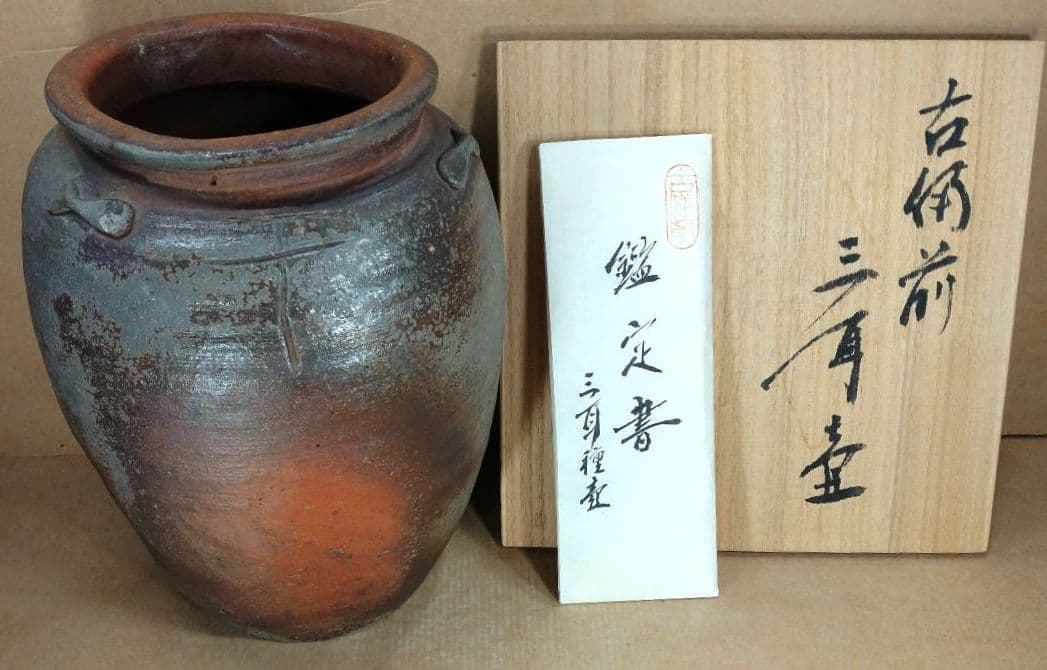 古備前
三耳壷
鑑定書
三耳種壷